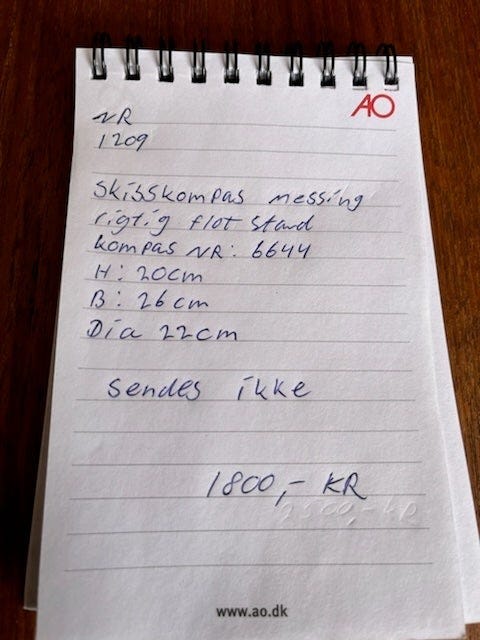 AO
NR
1209
Skibskompas messing
rigtig flot stand
kompas NR: 6644
H: 20cm
B: 26cm
Dia 22cm
sendes ikke
1800,- KR
2500,- KR
www.ao.dk